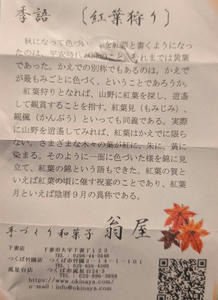 季語 〔紅葉狩り〕
秋になって色づい を紅葉と書くようになっ
たのは、平安時代 のこと それまでは黄葉
であった。かえでの別称でもあるのは、かえで
が最もみごとに色づく、ということであろうか。
紅葉狩りとなれば、山野に紅葉を探し、逍遙
して観賞することを指す。紅葉見(もみじみ)、
観楓(かんぷう)といっても同義である。実際
に山野を逍遙してみれば、紅葉はかえでに限ら
ない。さまざまな木々の葉が紅に、朱に、黄に
染まる。そのように一面に色づいた様を錦に見
立て、紅葉の錦という語もできた。紅葉の賀と
いえば紅葉の頃に催す祝宴のことであり、紅葉
月といえば陰暦9月の異称である。
手づくり和菓子 翁屋
下妻店
下妻市大字下妻丁123
つくば竹園店
https://www.okinaya.com